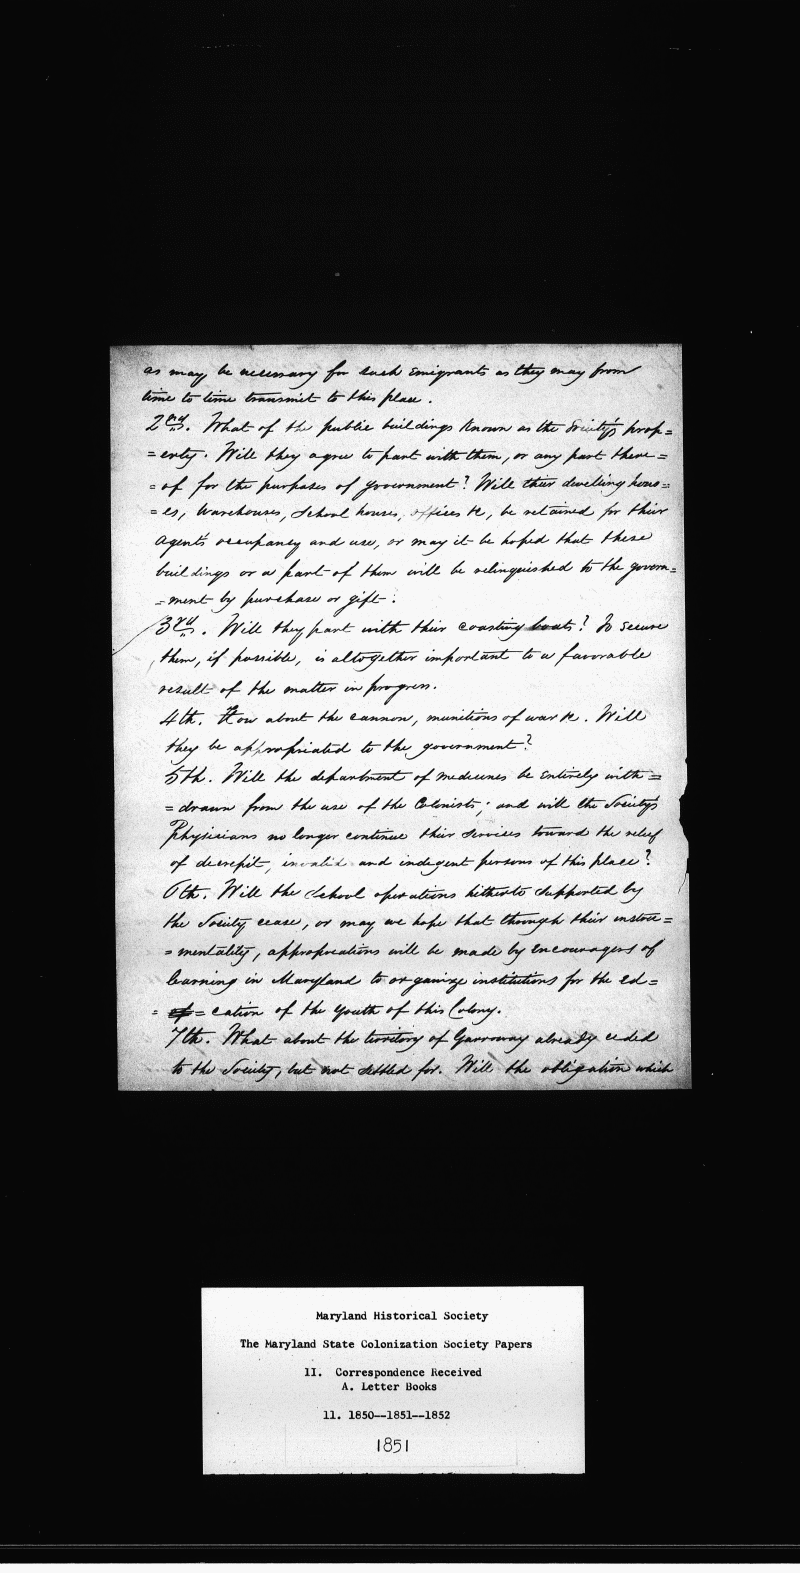 as may be necessary for such emigrants as they may from
time to time transmit to this place.
2nd. What of the public buildings known as the Society's prop=
=erty. Will they agree to part with them, or any part there=
=of for the purposes of government? Will their dwelling hous=
=es, warehouses, school houses, offices &c, be retained for their
agent's occupancy and use, or may it be hoped that these
buildings or a part of them will be relinquished to the govern=
=ment by purchase or gift.
3rd. Will they part with their coasting boats? To secure
them, if possible, is altogether important to a favorable
result of the matter in progress.
4th. How about the cannon, munitions of war &c. Will
they be appropriated to the government?
5th. Will the department of medicines be entirely with=
=drawn from the use of the Colonists; and will the Society's
Physicians no longer continue their services toward the relief
of decrepit, invalid and indegent persons of this place?
6th. Will the School operations hitherto supported by
the Society cease, or may we hope that through their instru=
=mentality, appropriations will be made by encouragers of
learning in Maryland to organize institutions for the ed=
=cation of the youth of this Colony.
7th. What about the territory of Garroway already ceded
to the Society, but not settled for. Will the obligation which
Maryland Historical Society
The Maryland State Colonization Society Papers
II. Correspondence Received
A. Letter Books
11. 1850--1851--1852
1851